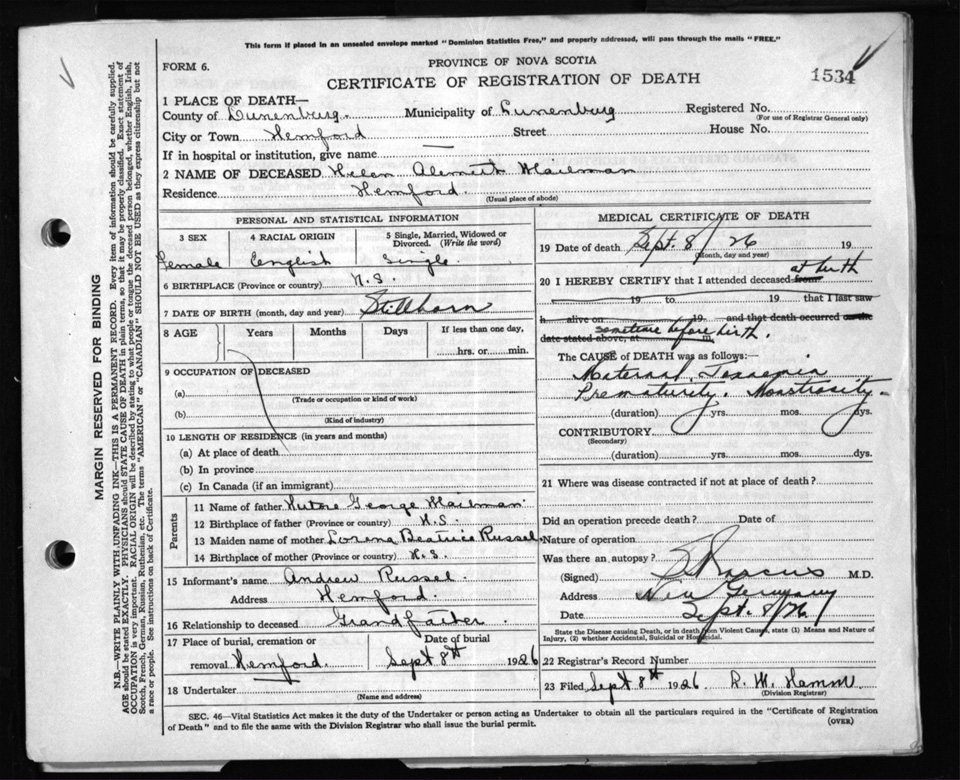 This form if placed in an unsealed envelope marked "Dominion Statistics Free," and properly addressed, will pass through the mails "FREE."
FORM 6.
PROVINCE OF NOVA SCOTIA
CERTIFICATE OF REGISTRATION OF DEATH
1534
1 PLACE OF DEATH—
County of Lunenburg. Municipality of Lunenburg Registered No.
(For use of Registrar General only)
City or Town Hemford Street House No.
If in hospital or institution, give name —
2 NAME OF DECEASED Helen Mailman
Residence Hemford.
(Usual place of abode)
PERSONAL AND STATISTICAL INFORMATION
3 SEX 4 RACIAL ORIGIN 5 Single, Married, Widowed or Divorced. (Write the word)
Female English Single.
6 BIRTHPLACE (Province or country) N.S.
7 DATE OF BIRTH (month, day and year) Stillborn
8 AGE Years Months Days If less than one day,
hrs. or min.
9 OCCUPATION OF DECEASED
(a)
(Trade or occupation or kind of work)
(b)
(Kind of industry)
10 LENGTH OF RESIDENCE (in years and months)
(a) At place of death
(b) In province
(c) In Canada (if an immigrant)
Parents
11 Name of father George Mailman
12 Birthplace of father (Province or country) N.S.
13 Maiden name of mother Lorena Beatrice Russel
14 Birthplace of mother (Province or country) N.S.
15 Informant's name Andrew Russel.
Address Hemford.
16 Relationship to deceased Grandfather.
17 Place of burial, cremation or removal Hemford. Date of burial Sept 8th 1926
18 Undertaker
(Name and address)
MEDICAL CERTIFICATE OF DEATH
19 Date of death Sept. 8/26 19
(Month, day and year)
at birth
20 I HEREBY CERTIFY that I attended deceased from
19 to 19 that I last saw
h alive on 19 and that death occurred on the
sometime before birth.
date stated above, at m.
The CAUSE of DEATH was as follows:—
Maternal Toxaemia
Prematurity. Monstrosity.
(duration) yrs. mos. dys.
CONTRIBUTORY
(Secondary)
(duration) yrs. mos. dys.
21 Where was disease contracted if not at place of death?
Did an operation precede death? Date of
Nature of operation
Was there an autopsy?
(Signed) M.D.
Address New Germany
Date Sept. 8/26
State the Disease causing Death, or in death from Violent Causes, state (1) Means and Nature of Injury, (2) whether Accidental, Suicidal or Homicidal.
22 Registrar's Record Number
23 Filed Sept 8th 1926
(Division Registrar)
SEC. 46—Vital Statistics Act makes it the duty of the Undertaker or person acting as Undertaker to obtain all the particulars required in the "Certificate of Registration
of Death" and to file the same with the Division Registrar who shall issue the burial permit.
(OVER)
MARGIN RESERVED FOR BINDING
N.B.—WRITE PLAINLY WITH UNFADING INK—THIS IS A PERMANENT RECORD. Every item of information should be carefully supplied.
AGE should be stated EXACTLY. PHYSICIANS should STATE CAUSE OF DEATH in plain terms, so that it may be properly classified. Exact statement of
OCCUPATION is very important. RACIAL ORIGIN will be described by stating to what people or tongue the deceased person belonged, whether English, Irish,
Scotch, French, German, Russian, Ruthenian, etc. The terms "AMERICAN" or "CANADIAN" SHOULD NOT BE USED as they express citizenship but not
a race or people. See instructions on back of Certificate.